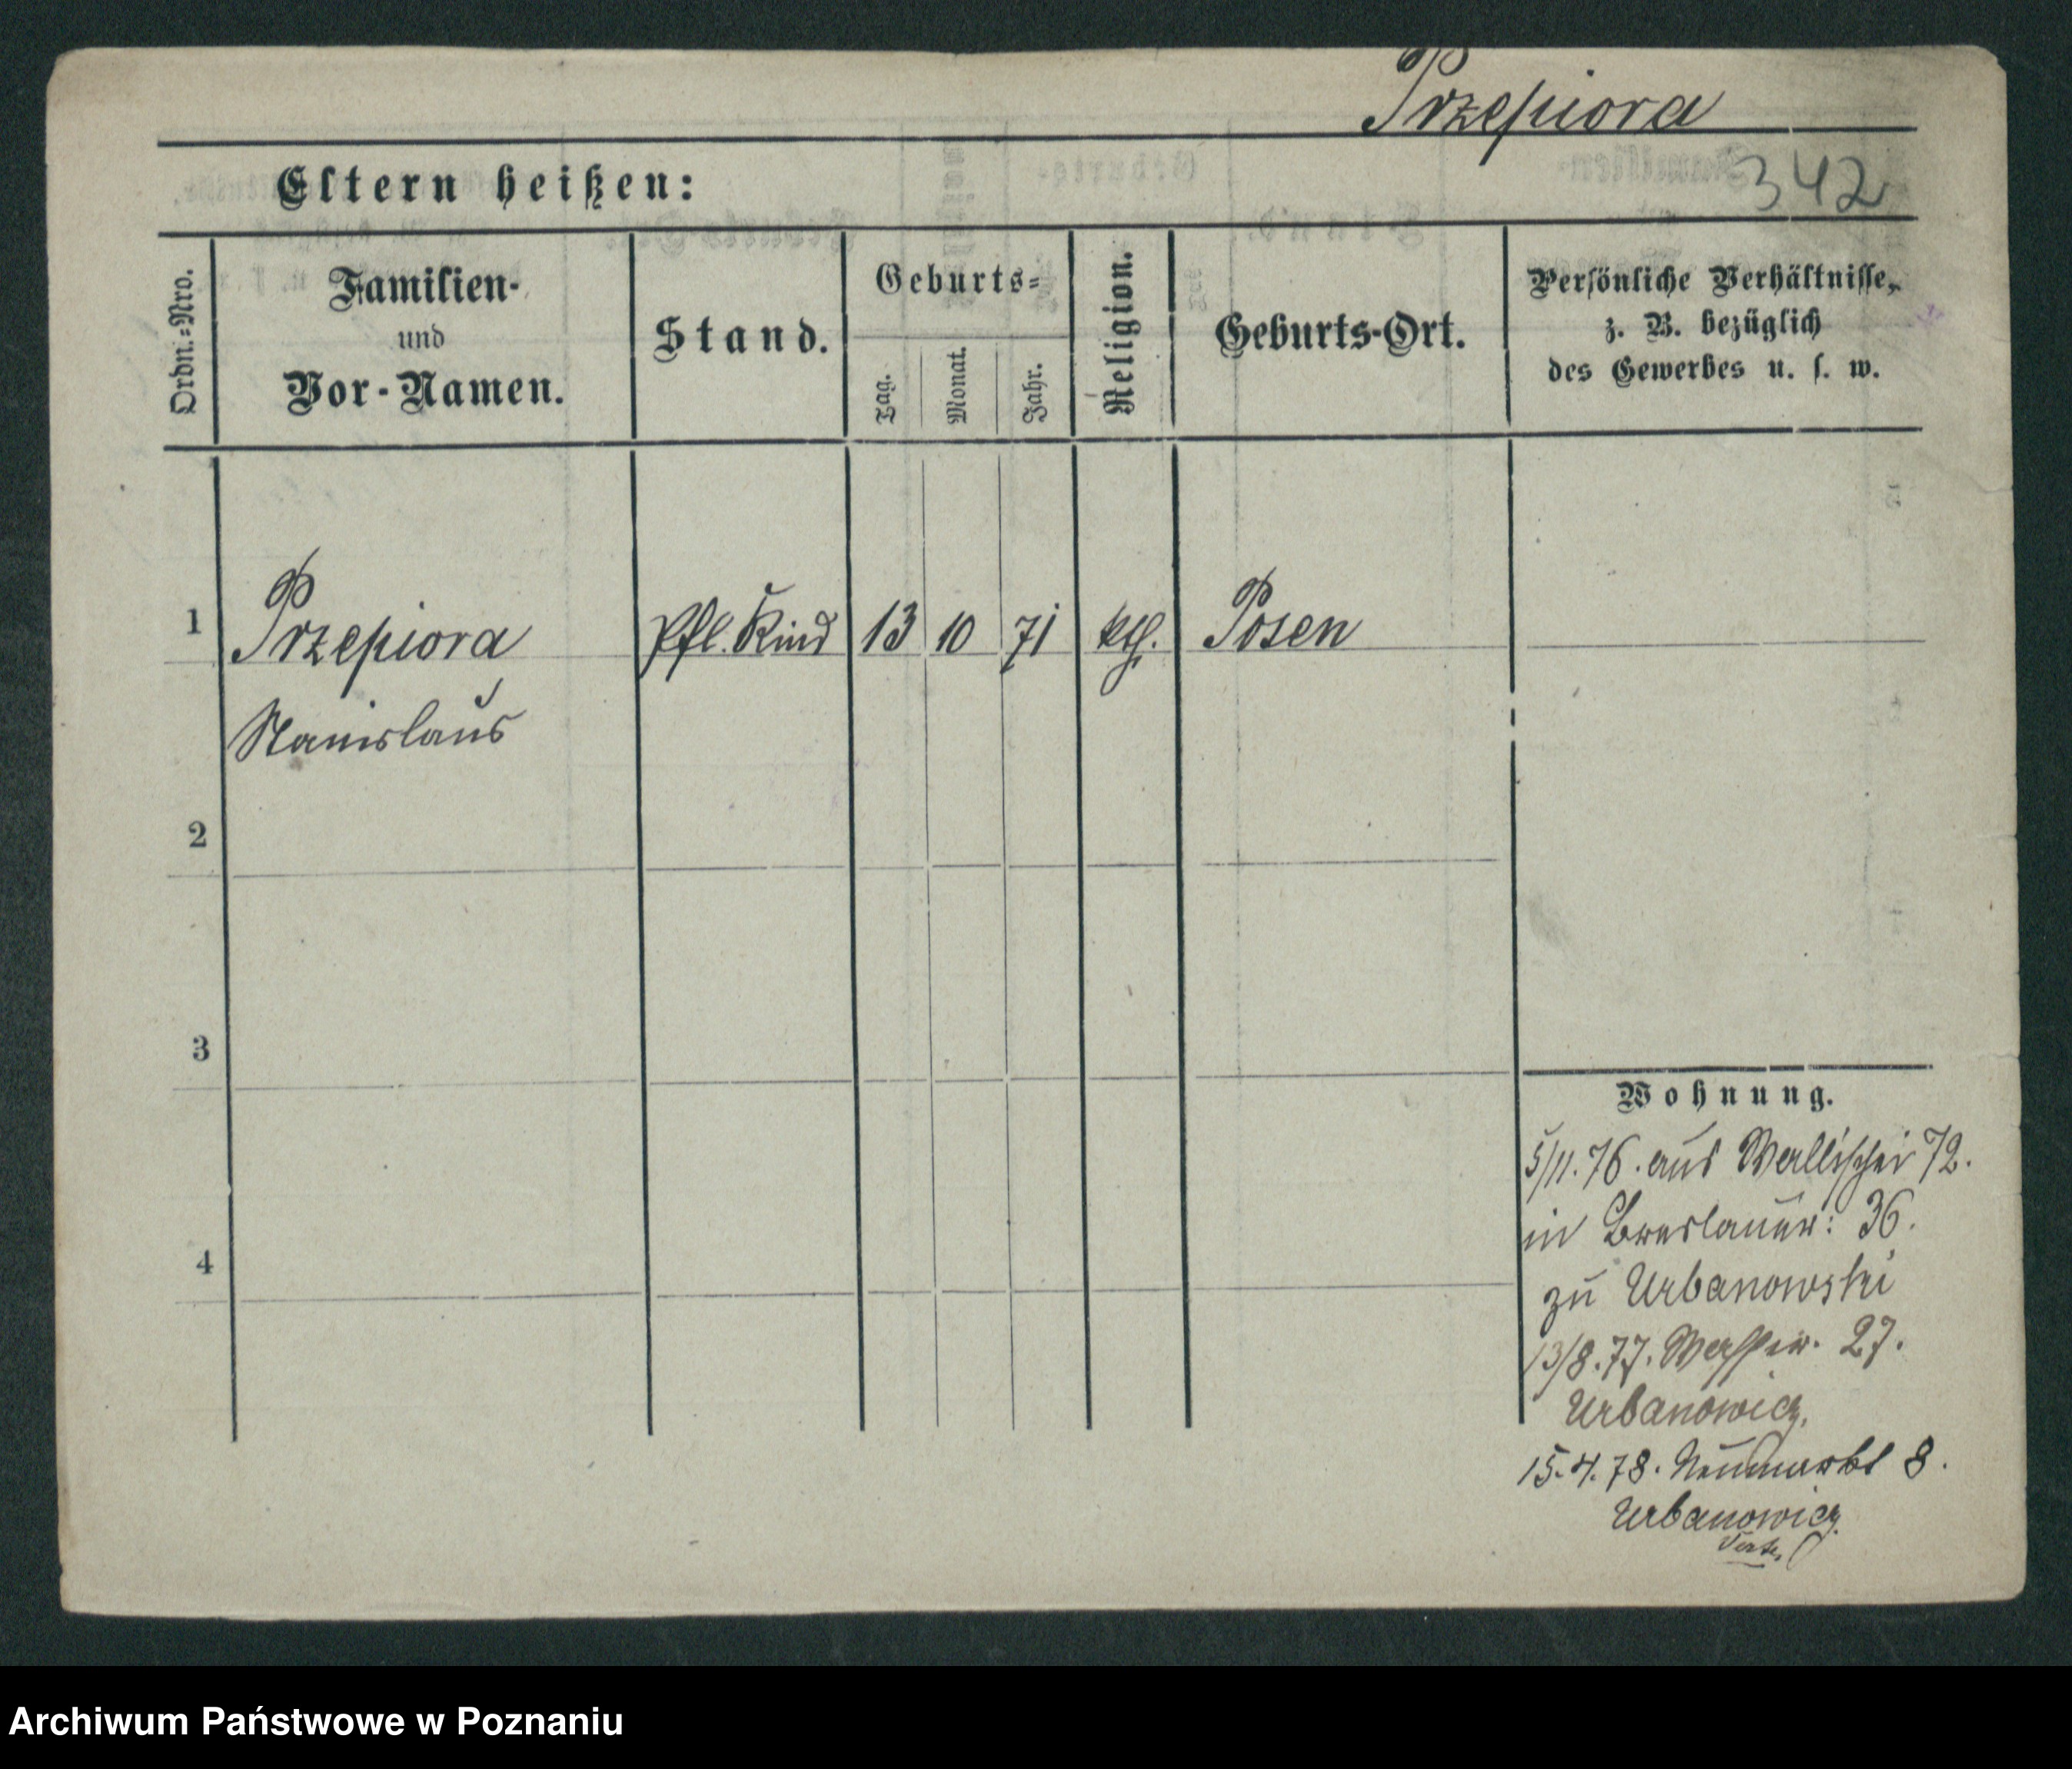 Przepiora
342
Eltern heißen:
Ordn.=Nro.
Familien-
und
Vor-Namen.
Stand.
Geburts=
Tag.
Monat.
Jahr.
Religion.
Geburts-Ort.
Persönliche Verhältnisse,
z. B. bezüglich
des Gewerbes u. s. w.
1 Przepiora Pfl. Kind 13 10 71 kth. Posen
Stanislaus
2
3
4
Wohnung.
5/11. 76. aus Wallischei 72.
in Breslauer: 36.
zu Urbanowski
13/8. 77. Wasser. 27.
Urbanowicz.
15.4.78. Neumarkt 8.
Urbanowicz
Archiwum Państwowe w Poznaniu